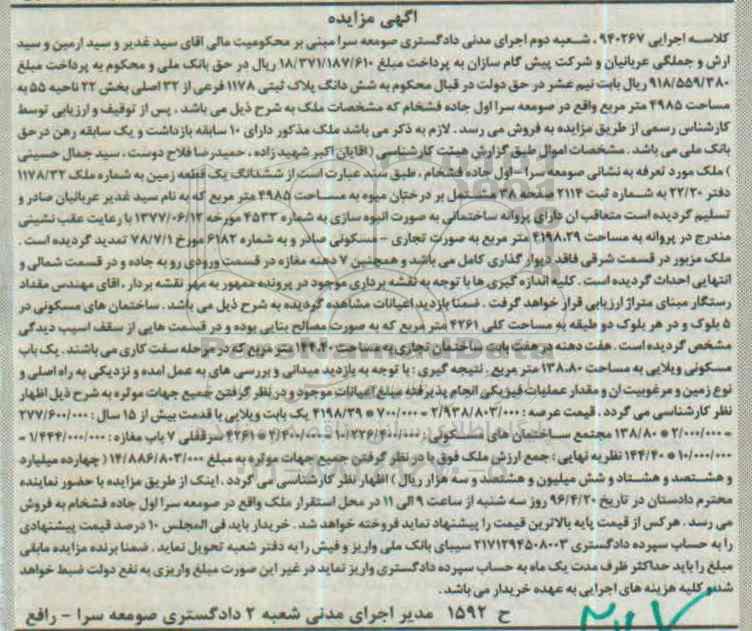 آگهی مزایده
کلاسه اجرایی ۹۴۰۲۶۷ ، شعبه دوم اجرای مدنی دادگستری صومعه سرا مبنی بر محکومیت مالی اقای سید غدیر و سید ارمین و سید
ارش و جملگی عربانیان و شرکت پیش گام سازان به پرداخت مبلغ ۱۸/۳۷۱/۱۸۷/۶۱۰ ریال در حق بانک ملی و محکوم به پرداخت مبلغ
۹۱۸/۵۵۹/۳۸۰ ریال بابت نیم عشر در حق دولت در قبال محکوم به شش دانگ پلاک ثبتی ۱۱۷۸ فرعی از ۳۲ اصلی بخش ۲۲ ناحیه ۵۵ به
مساحت ۴۹۸۵ متر مربع واقع در صومعه سرا اول جاده فشخام که مشخصات ملک به شرح ذیل می باشد ، پس از توقیف و ارزیابی توسط
کارشناس رسمی از طریق مزایده به فروش می رسد . لازم به ذکر می باشد ملک مذکور دارای ۱۰ سابقه بازداشت و یک سابقه رهن در حق
بانک ملی می باشد . مشخصات اموال طبق گزارش هیئت کارشناسی ( اقایان اکبر شهید زاده ، حمیدرضا فلاح دوست ، سید جمال حسینی
) ملک مورد تعرفه به نشانی صومعه سرا – اول جاده فشخام ، طبق سند عبارت است از ششدانگ یک قطعه زمین به شماره ملک ۱۱۷۸/۳۲
دفتر ۲۲/۲۰ به شماره ثبت ۲۱۱۴ صفحه ۳۸ مشتمل بر درختان میوه به مساحت ۴۹۸۵ متر مربع که به نام سید غدیر عربانیان صادر و
تسلیم گردیده است متعاقب ان دارای پروانه ساختمانی به صورت انبوه سازی به شماره ۴۵۳۳ مورخه ۱۳۷۷/۰۶/۱۲ با رعایت عقب نشینی
مندرج در پروانه به مساحت ۴۱۹۸.۳۹ متر مربع به صورت تجاری – مسکونی صادر و به شماره ۶۱۸۲ مورخ ۷۸/۷/۱ تمدید گردیده است .
ملک مزبور در قسمت شرقی فاقد دیوار گذاری کامل می باشد و همچنین ۷ دهنه مغازه در قسمت ورودی رو به جاده و در قسمت شمالی و
انتهایی احداث گردیده است . کلیه اندازه گیری ها با توجه به نقشه برداری موجود در پرونده ممهور به مهر نقشه بردار ، اقای مهندس مقداد
رستگار مبنای متراژ ارزیابی قرار خواهد گرفت . ضمنا بازدید اعیانات مشاهده گردیده به شرح ذیل می باشد . ساختمان های مسکونی در
۵ بلوک و در هر بلوک دو طبقه به مساحت کلی ۴۲۶۱ متر مربع که به صورت مصالح بنایی بوده و در قسمت هایی از سقف اسیب دیدگی
مشخص گردیده است . هفت دهنه در هفت بابت ساختمان تجاری به مساحت ۱۴۴.۴۰ متر مربع که در مرحله سفت کاری می باشند . یک باب
مسکونی ویلایی به مساحت ۱۳۸.۸۰ متر مربع . نتیجه گیری : با توجه به بازدید میدانی و بررسی های به عمل امده و نزدیکی به راه اصلی و
نوع زمین و مرغوبیت ان و مقدار عملیات فیزیکی انجام پذیرفته مبلغ اعیانات موجود و در نظر گرفتن جمیع جهات موثره به شرح ذیل اظهار
نظر کارشناسی می گردد . قیمت عرصه : ۲/۹۳۸/۸۰۳/۰۰۰ = ۷۰۰/۰۰۰ * ۴۱۹۸/۳۹ یک بابت ویلایی با قدمت بیش از ۱۵ سال : ۲۷۷/۶۰۰/۰۰۰
= ۲/۰۰۰/۰۰۰ * ۱۳۸/۸۰ مجتمع ساختمان های مسکونی : ۱۰/۲۲۶/۴۰۰/۰۰۰ = ۲/۴۰۰/۰۰۰ * ۴۲۶۱ سرقفلی ۷ باب مغازه : ۱/۴۴۴/۰۰۰/۰۰۰ =
۱۰/۰۰۰/۰۰۰ * ۱۴۴/۴۰ نظریه نهایی : جمع ارزش ملک فوق با در نظر گرفتن جمیع جهات موثره به مبلغ ۱۴/۸۸۶/۸۰۳/۰۰۰ ( چهارده میلیارد
و هشتصد و هشتاد و شش میلیون و هشتصد و سه هزار ریال ) اظهار نظر کارشناسی می گردد . اینک از طریق مزایده با حضور نماینده
محترم دادستان در تاریخ ۹۶/۴/۲۰ روز سه شنبه از ساعت ۹ الی ۱۱ در محل استقرار ملک واقع در صومعه سرا اول جاده فشخام به فروش
می رسد . هرکس از قیمت پایه بالاترین قیمت را پیشنهاد نماید فروخته خواهد شد . خریدار باید فی المجلس ۱۰ درصد قیمت پیشنهادی
را به حساب سپرده دادگستری ۲۱۷۱۲۹۴۵۰۸۰۰۳ سیبای بانک ملی واریز و فیش را به دفتر شعبه تحویل نماید . ضمنا برنده مزایده مابقی
مبلغ را باید حداکثر ظرف مدت یک ماه به حساب سپرده دادگستری واریز نماید در غیر این صورت مبلغ واریزی به نفع دولت ضبط خواهد
شد و کلیه هزینه های اجرایی به عهده خریدار می باشد .
ح ۱۵۹۲ مدیر اجرای مدنی شعبه ۲ دادگستری صومعه سرا – رافع